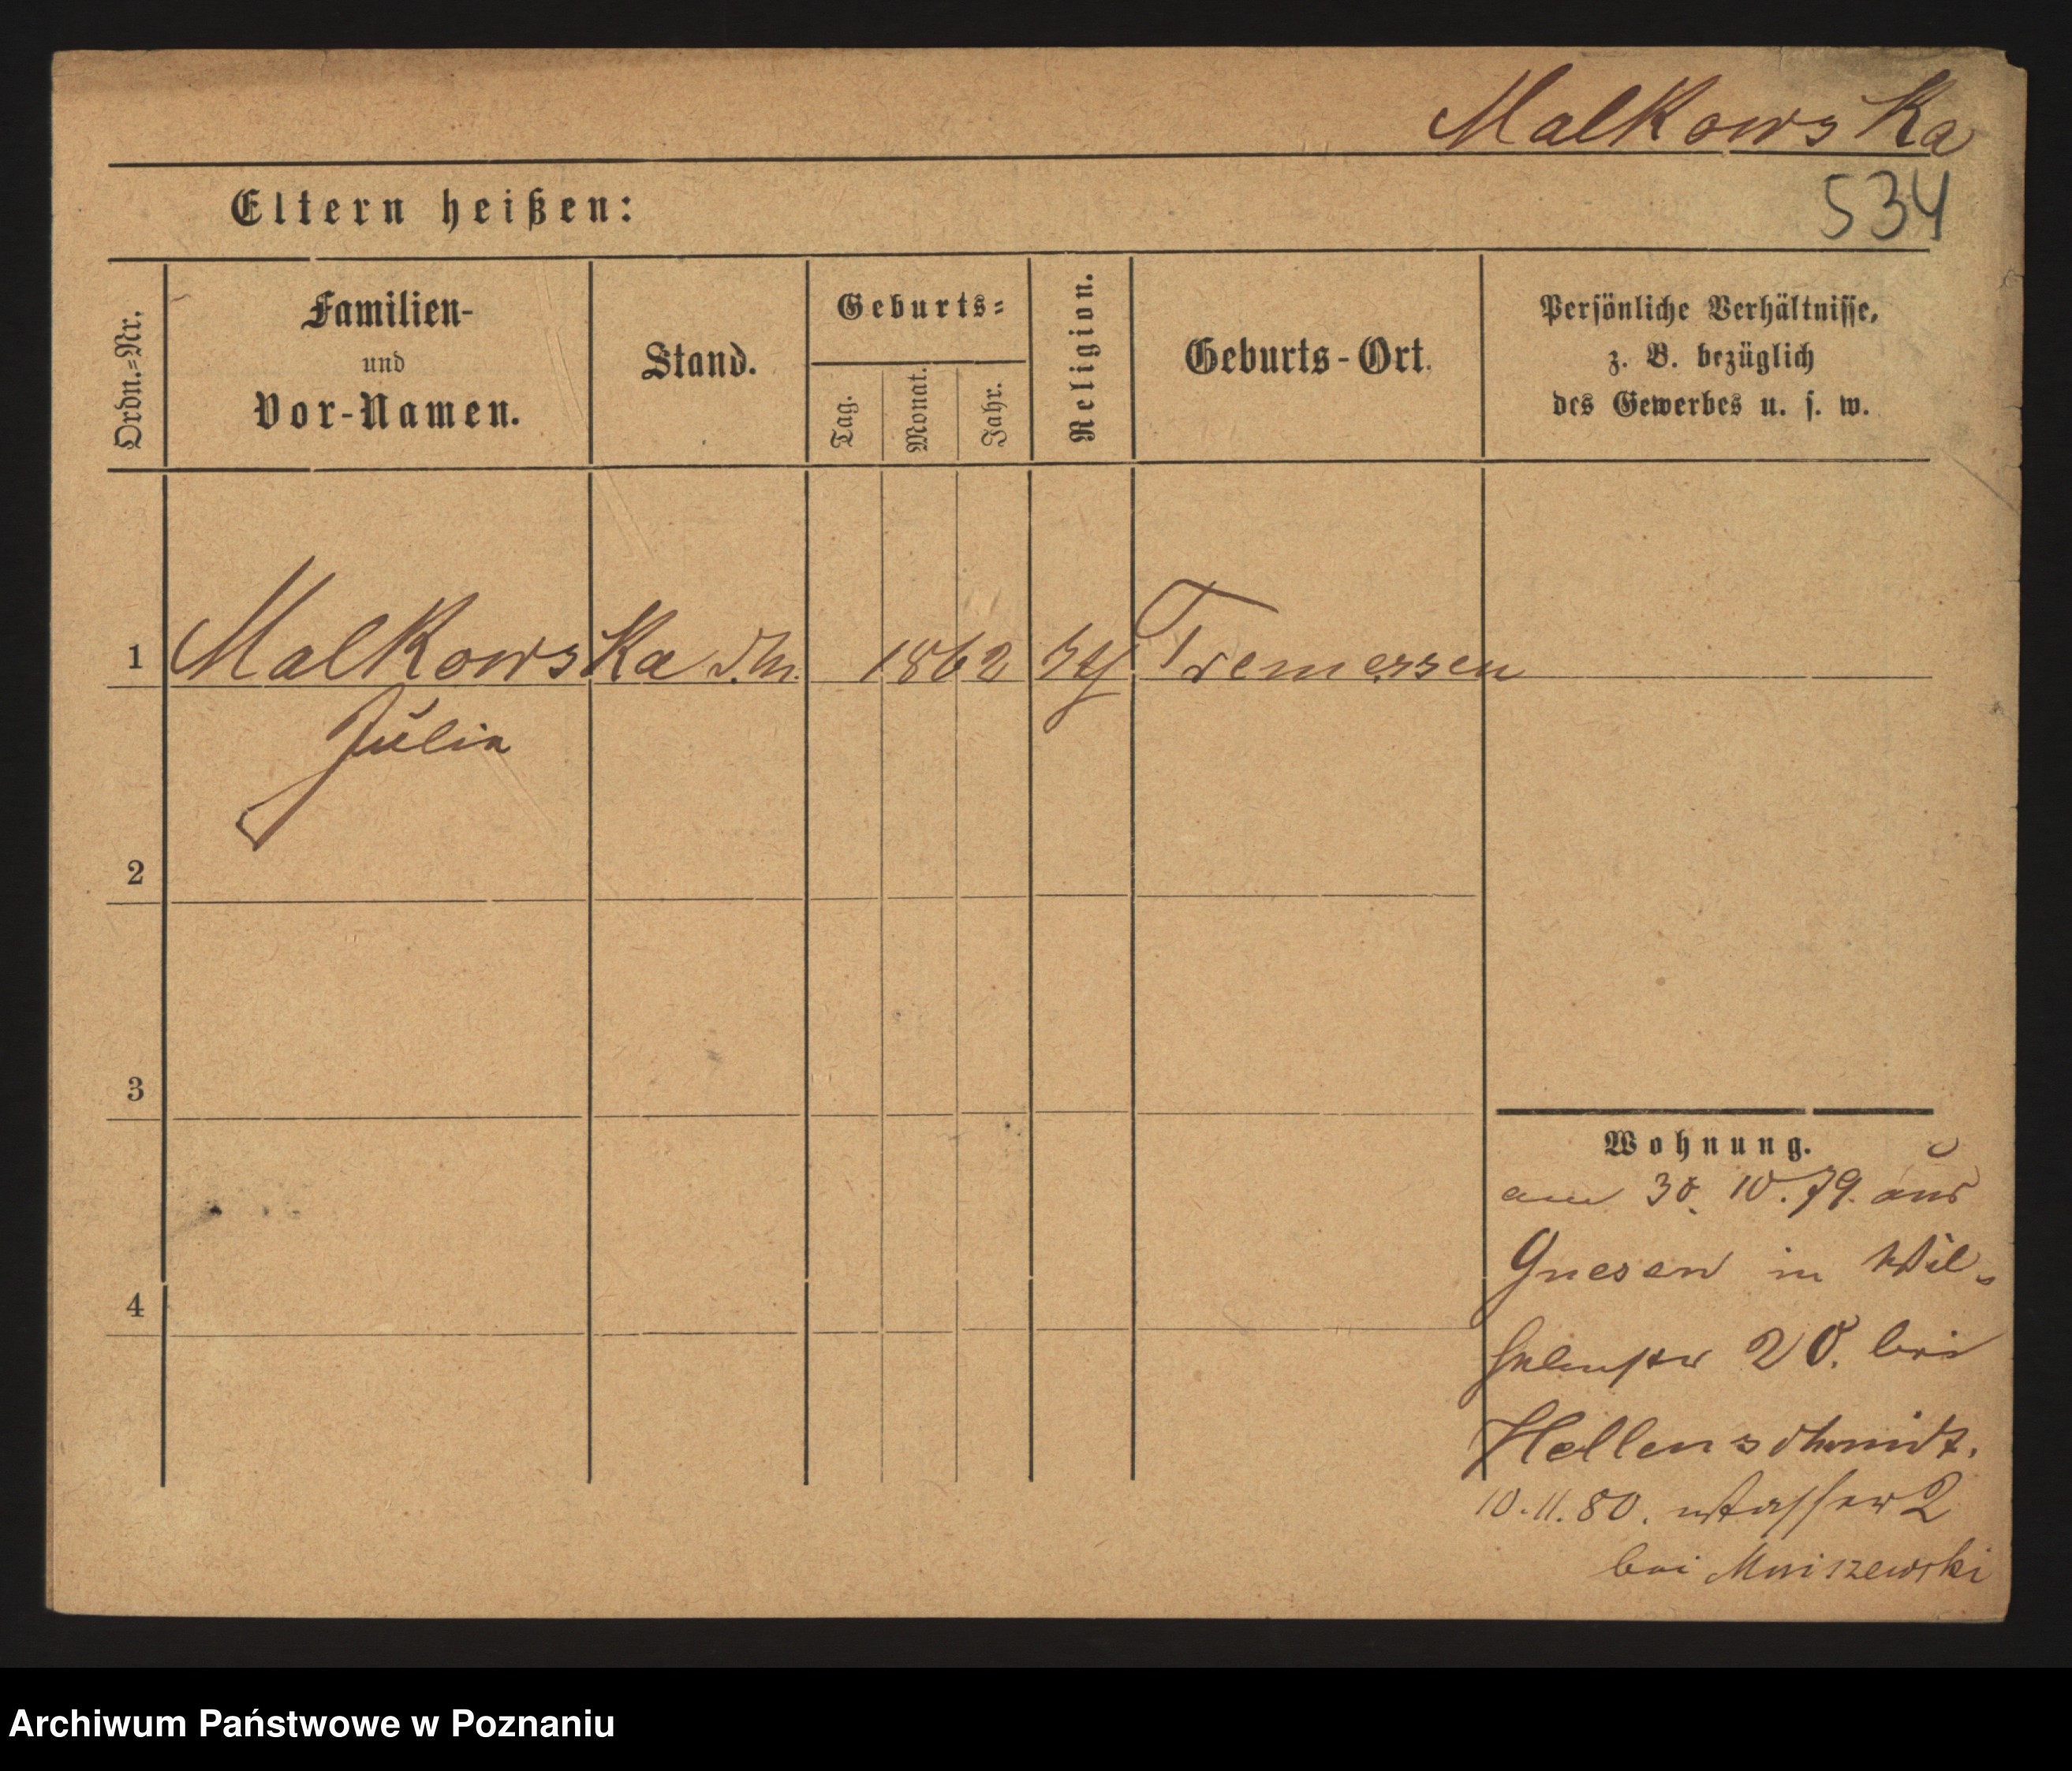 Malkowska
534
Eltern heißen:
Ordn.=Nr.
Familien-
und
Vor-Namen.
Stand.
Geburts=
Tag.
Monat.
Jahr.
Religion.
Geburts-Ort.
Persönliche Verhältnisse,
z. B. bezüglich
des Gewerbes u. s. w.
1 Malkowska 1862 Tremessen
Julia
2
3
4
Wohnung.
am 30. 10. 79. aus
Gnesen in Wil-
helmstr 20. bei
Hellenschmidt.
10. 11. 80. Wasserstr 2
bei Mniszewski
Archiwum Państwowe w Poznaniu